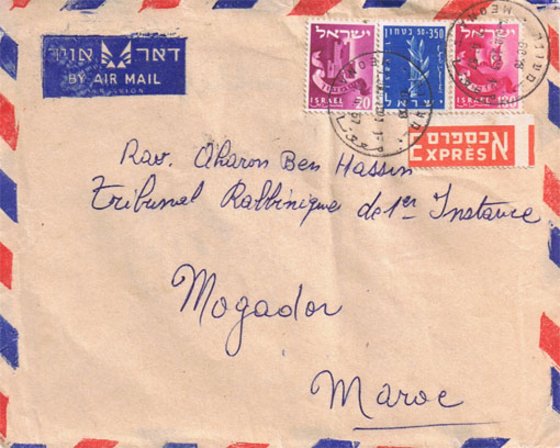 דאר אויר
BY AIR MAIL
ישראל
ISRAEL
20
50-350
ישראל
ישראל
ISRAEL
אכספרס
EXPRÈS
Rav. Aharon Ben Hassin
Tribunal Rabbinique de 1er Instance
Mogador
Maroc